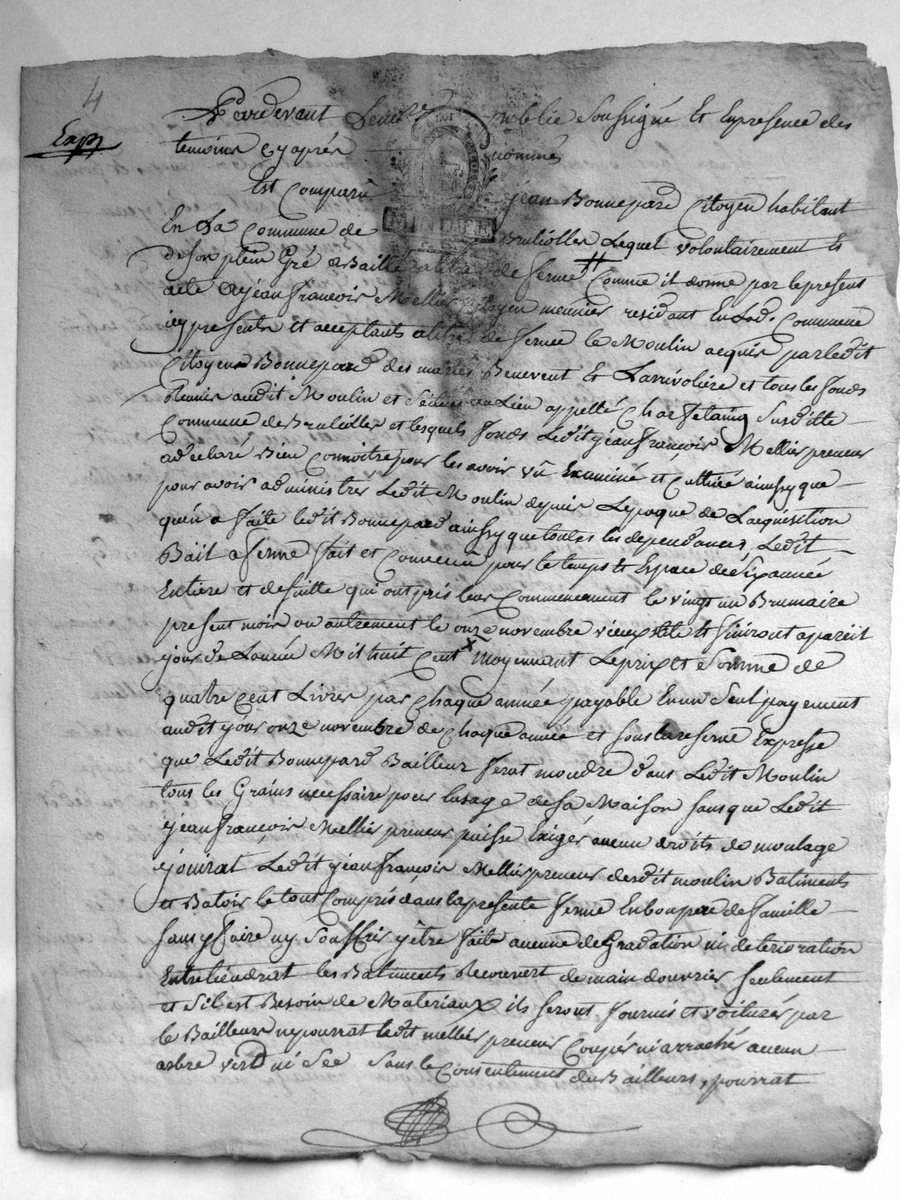 4
Exp
Pardevant Le not.re public Soussigné Et Enpresence des
temoins Cy après nommés
Est Comparu jean Bonnepard Citoyen habitant
En La Commune de Brulliolles Lequel volontairement Et
de son plein Gré a Baillé a titre de ferme # Comme il donne par le present
acte a jean francois Mellier Citoyen meunier residant En Lad. Commune
icy present et acceptants a titre de ferme le Moulin acquis par ledit
Citoyens Bonnepard des mariés Benevent Et Larrivolière et tous les fonds
audit Moulin et Scitués au Lieu appellé Susditte
Commune de Brulliolles et lesquels fonds Ledit jean francois Mellier preneur
a declaré Bien Connoitre pour les avoir vû Examiné et Cultivé ainsy que
pour avoir administrer Ledit Moulin depuis Lepoque de Laquisition
quen a faite ledit Bonnepard ainsy que toutes les dependances, Ledit
Bail a ferme fait et Convenu pour le temps Et Espace de Six année
Entiere et de suitte qui ont pris leur Commencement le vingt un Brumaire
present mois ou autrement le onze novembre vieux stile Et finiront a pareil
jour de Lannée Mil huit Cent x Moyennant Le prix et Somme de
quatre Cent Livres par Chaque année payable En un Seul payement
audit jour onze novembre de Chaque année et sous la reserve Expresse
que Ledit Bonnepard Bailleur ferat moudre dans Ledit Moulin
tous les Grains necessaire pour Lusage de Sa Maison sans que Ledit
jean francois Mellier preneur puisse Exigér aucun droits de moulage
jouirat Ledit jean francois Mellier preneur desdit moulin Batiments
et Batoir le tout Compris dans la presente ferme En bon pere de famille
sans y faire ny Souffrir y être faite aucune deGradation ni deterioration
Entretiendrat les Batiments Recouvert de main douvrier seulement
et Sil est Besoin de Materiaux ils seront fournis et voiturés par
le Bailleur ne pourrat ledit mellier preneur Coupér ni arrachér aucun
arbre verd ni Sec Sans le Consentement du Bailleurs, pourrat